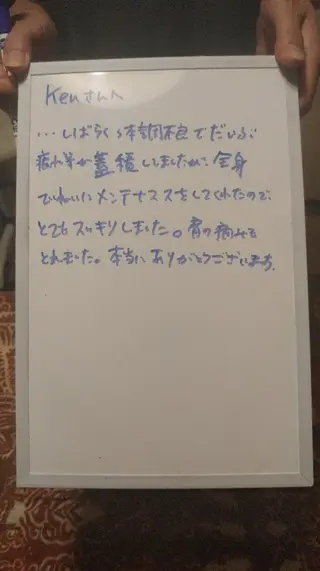 Kenさんへ
…しばらく体調不良でだいぶ
疲れ等が蓄積してましたが、全身
ていねいにメンテナスをしてくれたので、
とてもスッキリしました。肩の痛みも
とれました。本当にありがとうございます。